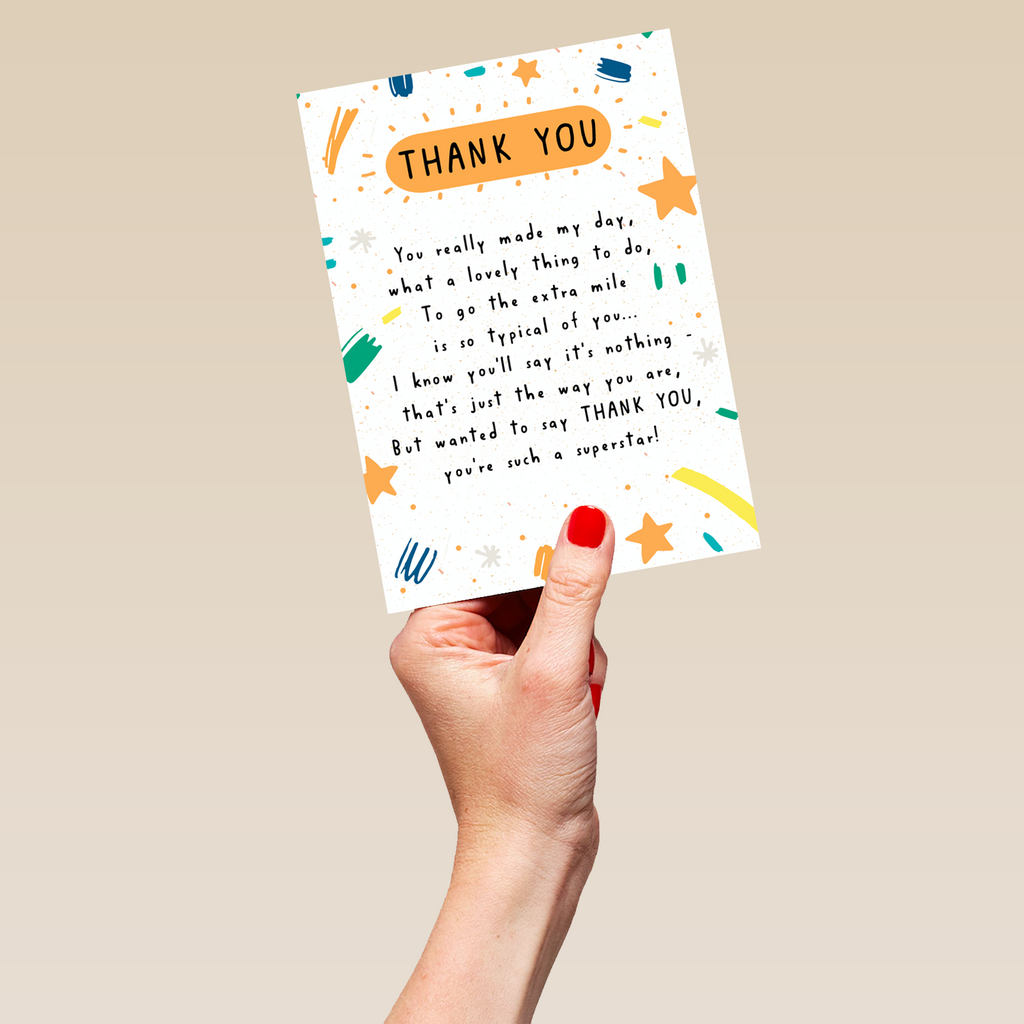 THANK YOU
You really made my day,
what a lovely thing to do,
To go the extra mile
is so typical of you...
I know you'll say it's nothing -
that's just the way you are,
But wanted to say THANK YOU,
you're such a superstar!